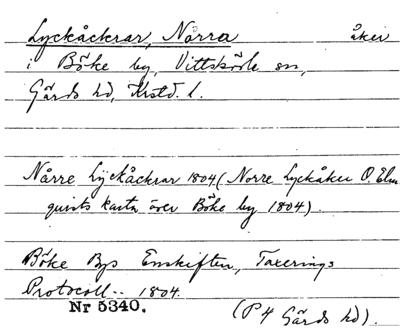 Lyckåckrar, Norra åker
i Böke by, Vittskövle sn,
Gärds hd, Krstd. l.
Nårre Lyckåckrar 1804 (Norre Lyckåker O. Elm
quists karta över Böke by 1804).
Böke Bys Enskiften, Taxerings
Protocoll .. 1804.
Nr 5340.
(P 4 Gärds hd).